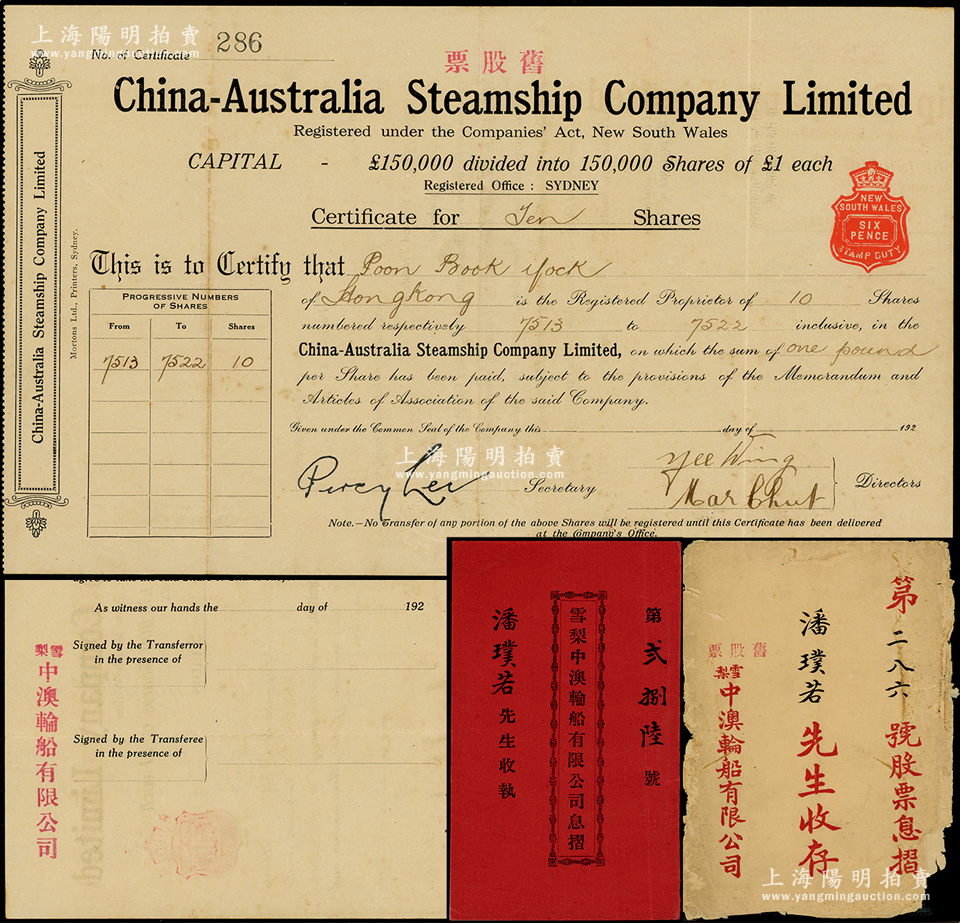 上海陽明拍賣
www.yangmingauction.com
No. of Certificate 286
舊股票
China-Australia Steamship Company Limited
Registered under the Companies' Act, New South Wales
CAPITAL - £150,000 divided into 150,000 Shares of £1 each
Registered Office : SYDNEY
Certificate for Ten Shares
NEW
SOUTH WALES
SIX
PENCE
STAMP DUTY
This is to Certify that Poon Book Yock
of Hongkong is the Registered Proprietor of 10 Shares
numbered respectively 7513 to 7522 inclusive, in the
China-Australia Steamship Company Limited, on which the sum of one pound
per Share has been paid, subject to the provisions of the Memorandum and
Articles of Association of the said Company.
Given under the Common Seal of the Company this day of 192
PROGRESSIVE NUMBERS
OF SHARES
From To Shares
7513 7522 10
Percy Lee Secretary
Yee Wing
Mar Chut
Directors
Note.—No Transfer of any portion of the above Shares will be registered until this Certificate has been delivered
at the Company's Office.
China-Australia Steamship Company Limited
Mortons Ltd., Printers, Sydney.
上海陽明拍賣
www.yangmingauction.com
As witness our hands the day of 192
Signed by the Transferror
in the presence of
Signed by the Transferee
in the presence of
雪梨中澳輪船有限公司
第弍捌陸號
雪梨中澳輪船有限公司息摺
潘璞若先生收執
第二八六號股票息摺
潘璞若先生收存
舊股票
雪梨中澳輪船有限公司
上海陽明拍賣
www.yangmingauction.com